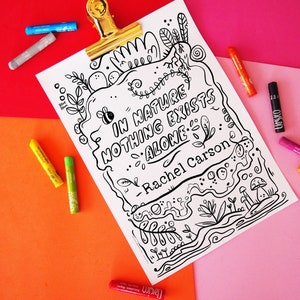 "IN NATURE
NOTHING EXISTS
ALONE"
- Rachel Carson